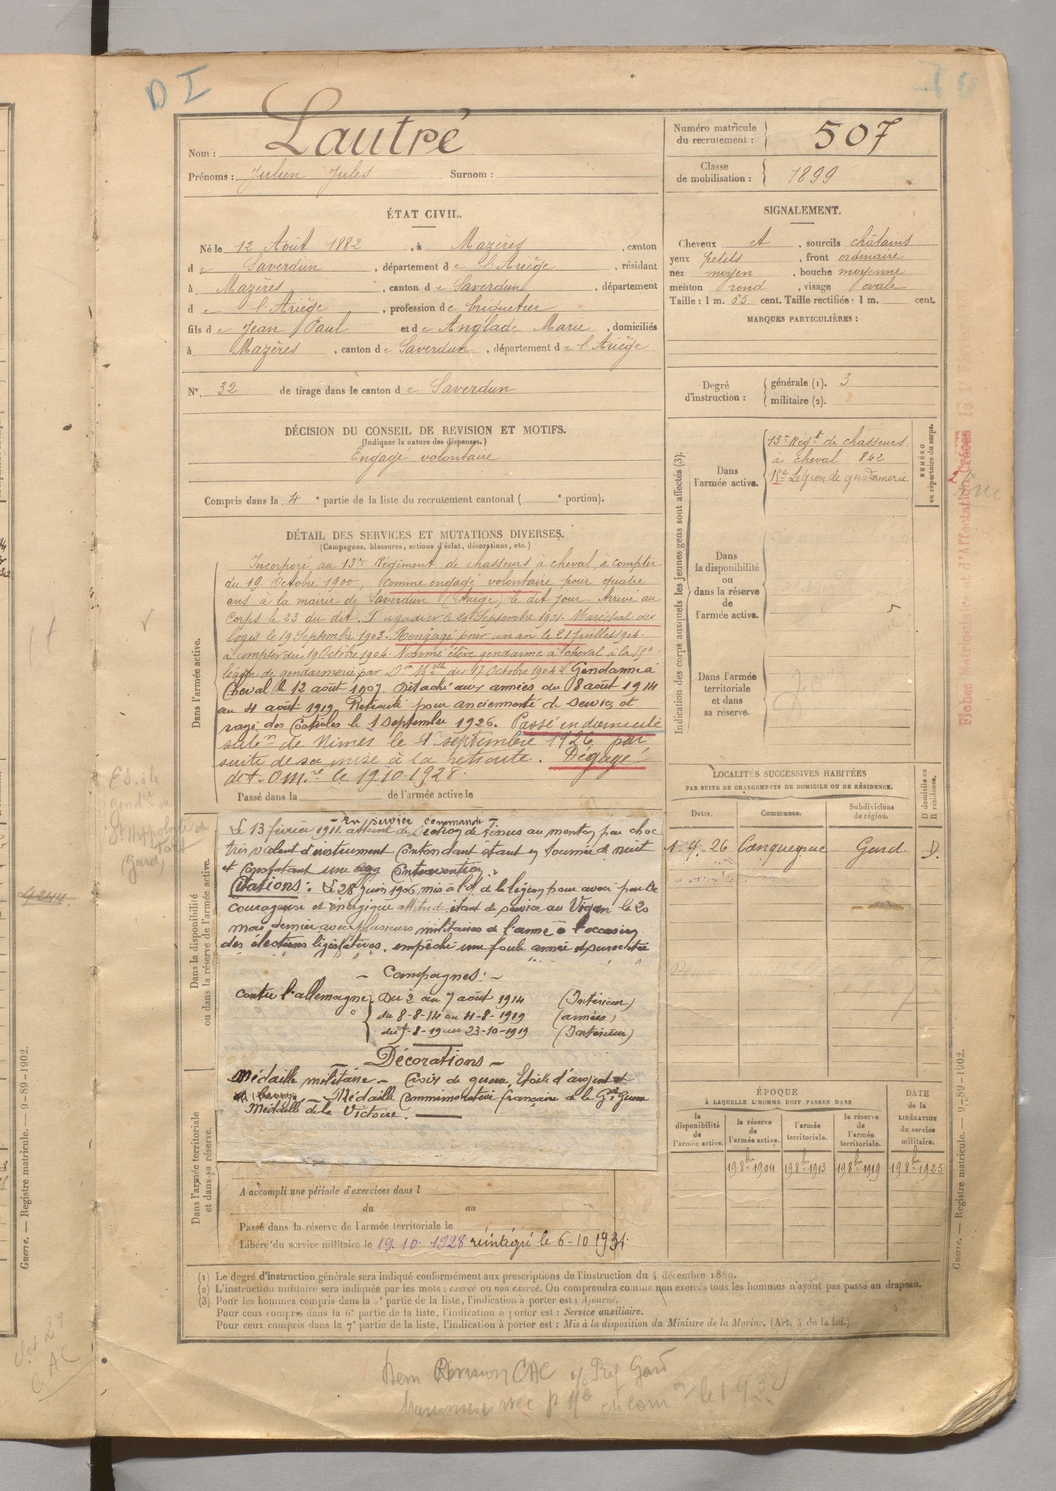 DI
Nom : Lautré
Prénoms : Julien Jules Surnom :
Numéro matricule du recrutement : 507
Classe de mobilisation : 1899
ÉTAT CIVIL.
Né le 12 Août 1882, à Mazères, canton
de Saverdun, département de l'Ariège, résidant
à Mazères, canton de Saverdun, département
de l'Ariège, profession de briquetier
fils de Jean Paul et de Anglade Marie, domiciliés
à Mazères, canton de Saverdun, département de l'Ariège
N° 32 de tirage dans le canton de Saverdun
SIGNALEMENT.
Cheveux et, sourcils châtains
yeux petits, front ordinaire
nez moyen, bouche moyenne
menton rond, visage ovale
Taille : 1 m. 55 cent. Taille rectifiée : 1 m. cent.
MARQUES PARTICULIÈRES :
Degré d'instruction : générale (1). 3
militaire (2).
DÉCISION DU CONSEIL DE REVISION ET MOTIFS.
(Indiquer la nature des dispenses.)
Engagé volontaire
Compris dans la 4e partie de la liste du recrutement cantonal ( portion).
DÉTAIL DES SERVICES ET MUTATIONS DIVERSES.
(Campagnes, blessures, actions d'éclat, décorations, etc.)
Dans l'armée active.
Incorporé au 13e Régiment de chasseurs à cheval à compter
du 19 Octobre 1900, comme engagé volontaire pour quatre
ans à la mairie de Saverdun (Ariège) le dit jour. Arrivé au
Corps le 23 du dit. Brigadier le Septembre 1901. Maréchal des
logis le 19 Septembre 1903. Rengagé pour un an le 21 juillet 1904
à compter du 19 Octobre 1904. Nommé élève gendarme à cheval à la 15e
légion de gendarmerie par Don Mlle du 17 Octobre 1904. Gendarme à
Cheval le 12 août 1907. Détaché aux armées du 8 août 1914
au 4 août 1919. Retraité pour ancienneté de service et
rayé des Contrôles le 1 septembre 1926. Passé en domicile
sub de Nîmes le 1er septembre 1926 par
suite de sa mise à la retraite. Dégagé
d't. Om.re le 19 10 1928.
Passé dans la de l'armée active le
Dans la disponibilité ou dans la réserve de l'armée active.
En service commandé
Le 13 février 1911. atteint de Section de au menton par choc
très violent d'instrument Contondant étant en tournée de nuit
et Constatant une Contravention.
Citations : Le 28 juin 1906, mis à l'O. de la légion pour avoir par sa
courageuse et énergique attitude, étant de service au Vigan le 20
mai dernier avec plusieurs militaires de l'arme à l'occasion
des élections législatives, empêché une foule
— Campagnes : —
Contre l'allemagne Du 2 au 7 août 1914 (Intérieur)
du 8-8-14 au 4-8-1919 (armées)
du 5-8-19 au 23-10-1919 (Intérieur)
Décorations —
Médaille militaire — Croix de guerre, Etoile d'argent et
Médaille Commémorative française de la Gde Guerre
Médaille de la Victoire. —
Dans l'armée territoriale et dans sa réserve.
A accompli une période d'exercices dans l
du au
Passé dans la réserve de l'armée territoriale le
Libéré du service militaire le 19 10 1928 réintégré le 6-10 1931.
Indication des corps auxquels les jeunes gens sont affectés (3).
NUMÉRO au répertoire du corps.
Dans l'armée active.
13e Régt de chasseurs
à Cheval 842
15e Légion de gendarmerie
Dans la disponibilité ou dans la réserve de l'armée active.
Dans l'armée territoriale et dans sa réserve.
LOCALITÉS SUCCESSIVES HABITÉES
PAR SUITE DE CHANGEMENTS DE DOMICILE OU DE RÉSIDENCE.
Dates. Communes. Subdivisions de région. D domicile ou R résidence.
1-9-26 Conqueyrac Gard D.
ÉPOQUE
À LAQUELLE L'HOMME DOIT PASSER DANS
la disponibilité de l'armée active.
la réserve de l'armée active.
l'armée territoriale.
la réserve de l'armée territoriale.
DATE de la LIBÉRATION du service militaire.
19 8bre 1904 19 8bre 1913 19 8bre 1919 19 8bre 1925
(1) Le degré d'instruction générale sera indiqué conformément aux prescriptions de l'instruction du 4 décembre 1889.
(2) L'instruction militaire sera indiquée par les mots : exercé ou non exercé. On comprendra comme non exercés tous les hommes n'ayant pas passé au drapeau.
(3) Pour les hommes compris dans la 5e partie de la liste, l'indication à porter est : Ajourné.
Pour ceux compris dans la 6e partie de la liste, l'indication à porter est : Service auxiliaire.
Pour ceux compris dans la 7e partie de la liste, l'indication à porter est : Mis à la disposition du Ministre de la Marine. (Art. 4 de la loi.)
Guerre. — Registre matricule. — 9-89-1902.
Guerre. — Registre matricule. — 9-89-1902.